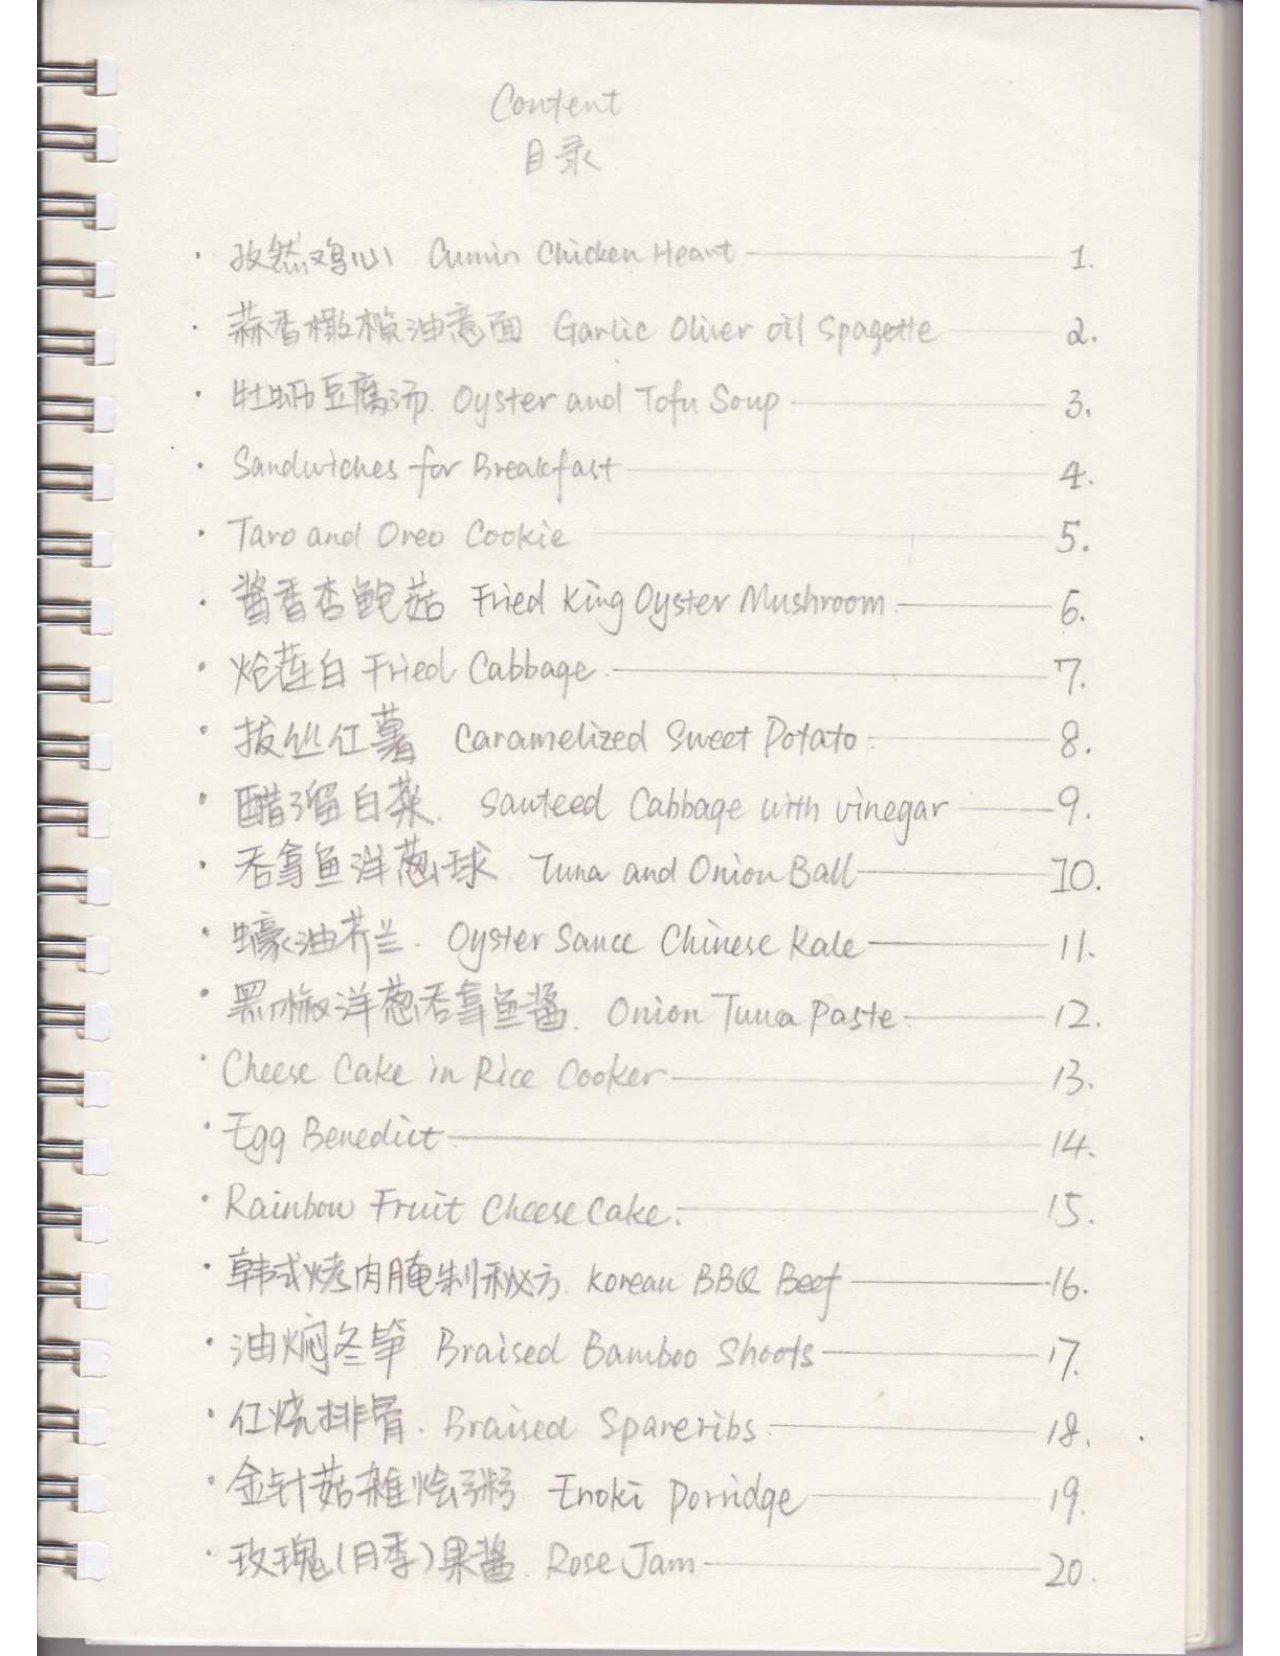 Content
目录
· 孜然鸡心 Cumin Chicken Heart 1.
· 蒜香橄榄油意面 Garlic Oliver oil Spagette 2.
· 牡蛎豆腐汤. Oyster and Tofu Soup 3.
· Sandwiches for Breakfast 4.
· Taro and Oreo Cookie 5.
· 酱香杏鲍菇 Fried King Oyster Mushroom 6.
· 炝莲白 Fried Cabbage 7.
· 拔丝红薯 Caramelized Sweet Potato 8.
· 醋溜白菜. Sauteed Cabbage with vinegar 9.
· 吞拿鱼洋葱球 Tuna and Onion Ball 10.
· 蚝油芥兰. Oyster Sauce Chinese Kale 11.
· 黑椒洋葱吞拿鱼酱. Onion Tuna Paste 12.
· Cheese Cake in Rice Cooker 13.
· Egg Benedict 14.
· Rainbow Fruit Cheese Cake. 15.
· 韩式烤肉腌制秘方. Korean BBQ Beef 16.
· 油焖冬笋 Braised Bamboo Shoots 17.
· 红烧排骨. Braised Spareribs 18.
· 金针菇杂烩粥. Enoki Porridge 19.
· 玫瑰(月季)果酱. Rose Jam 20.